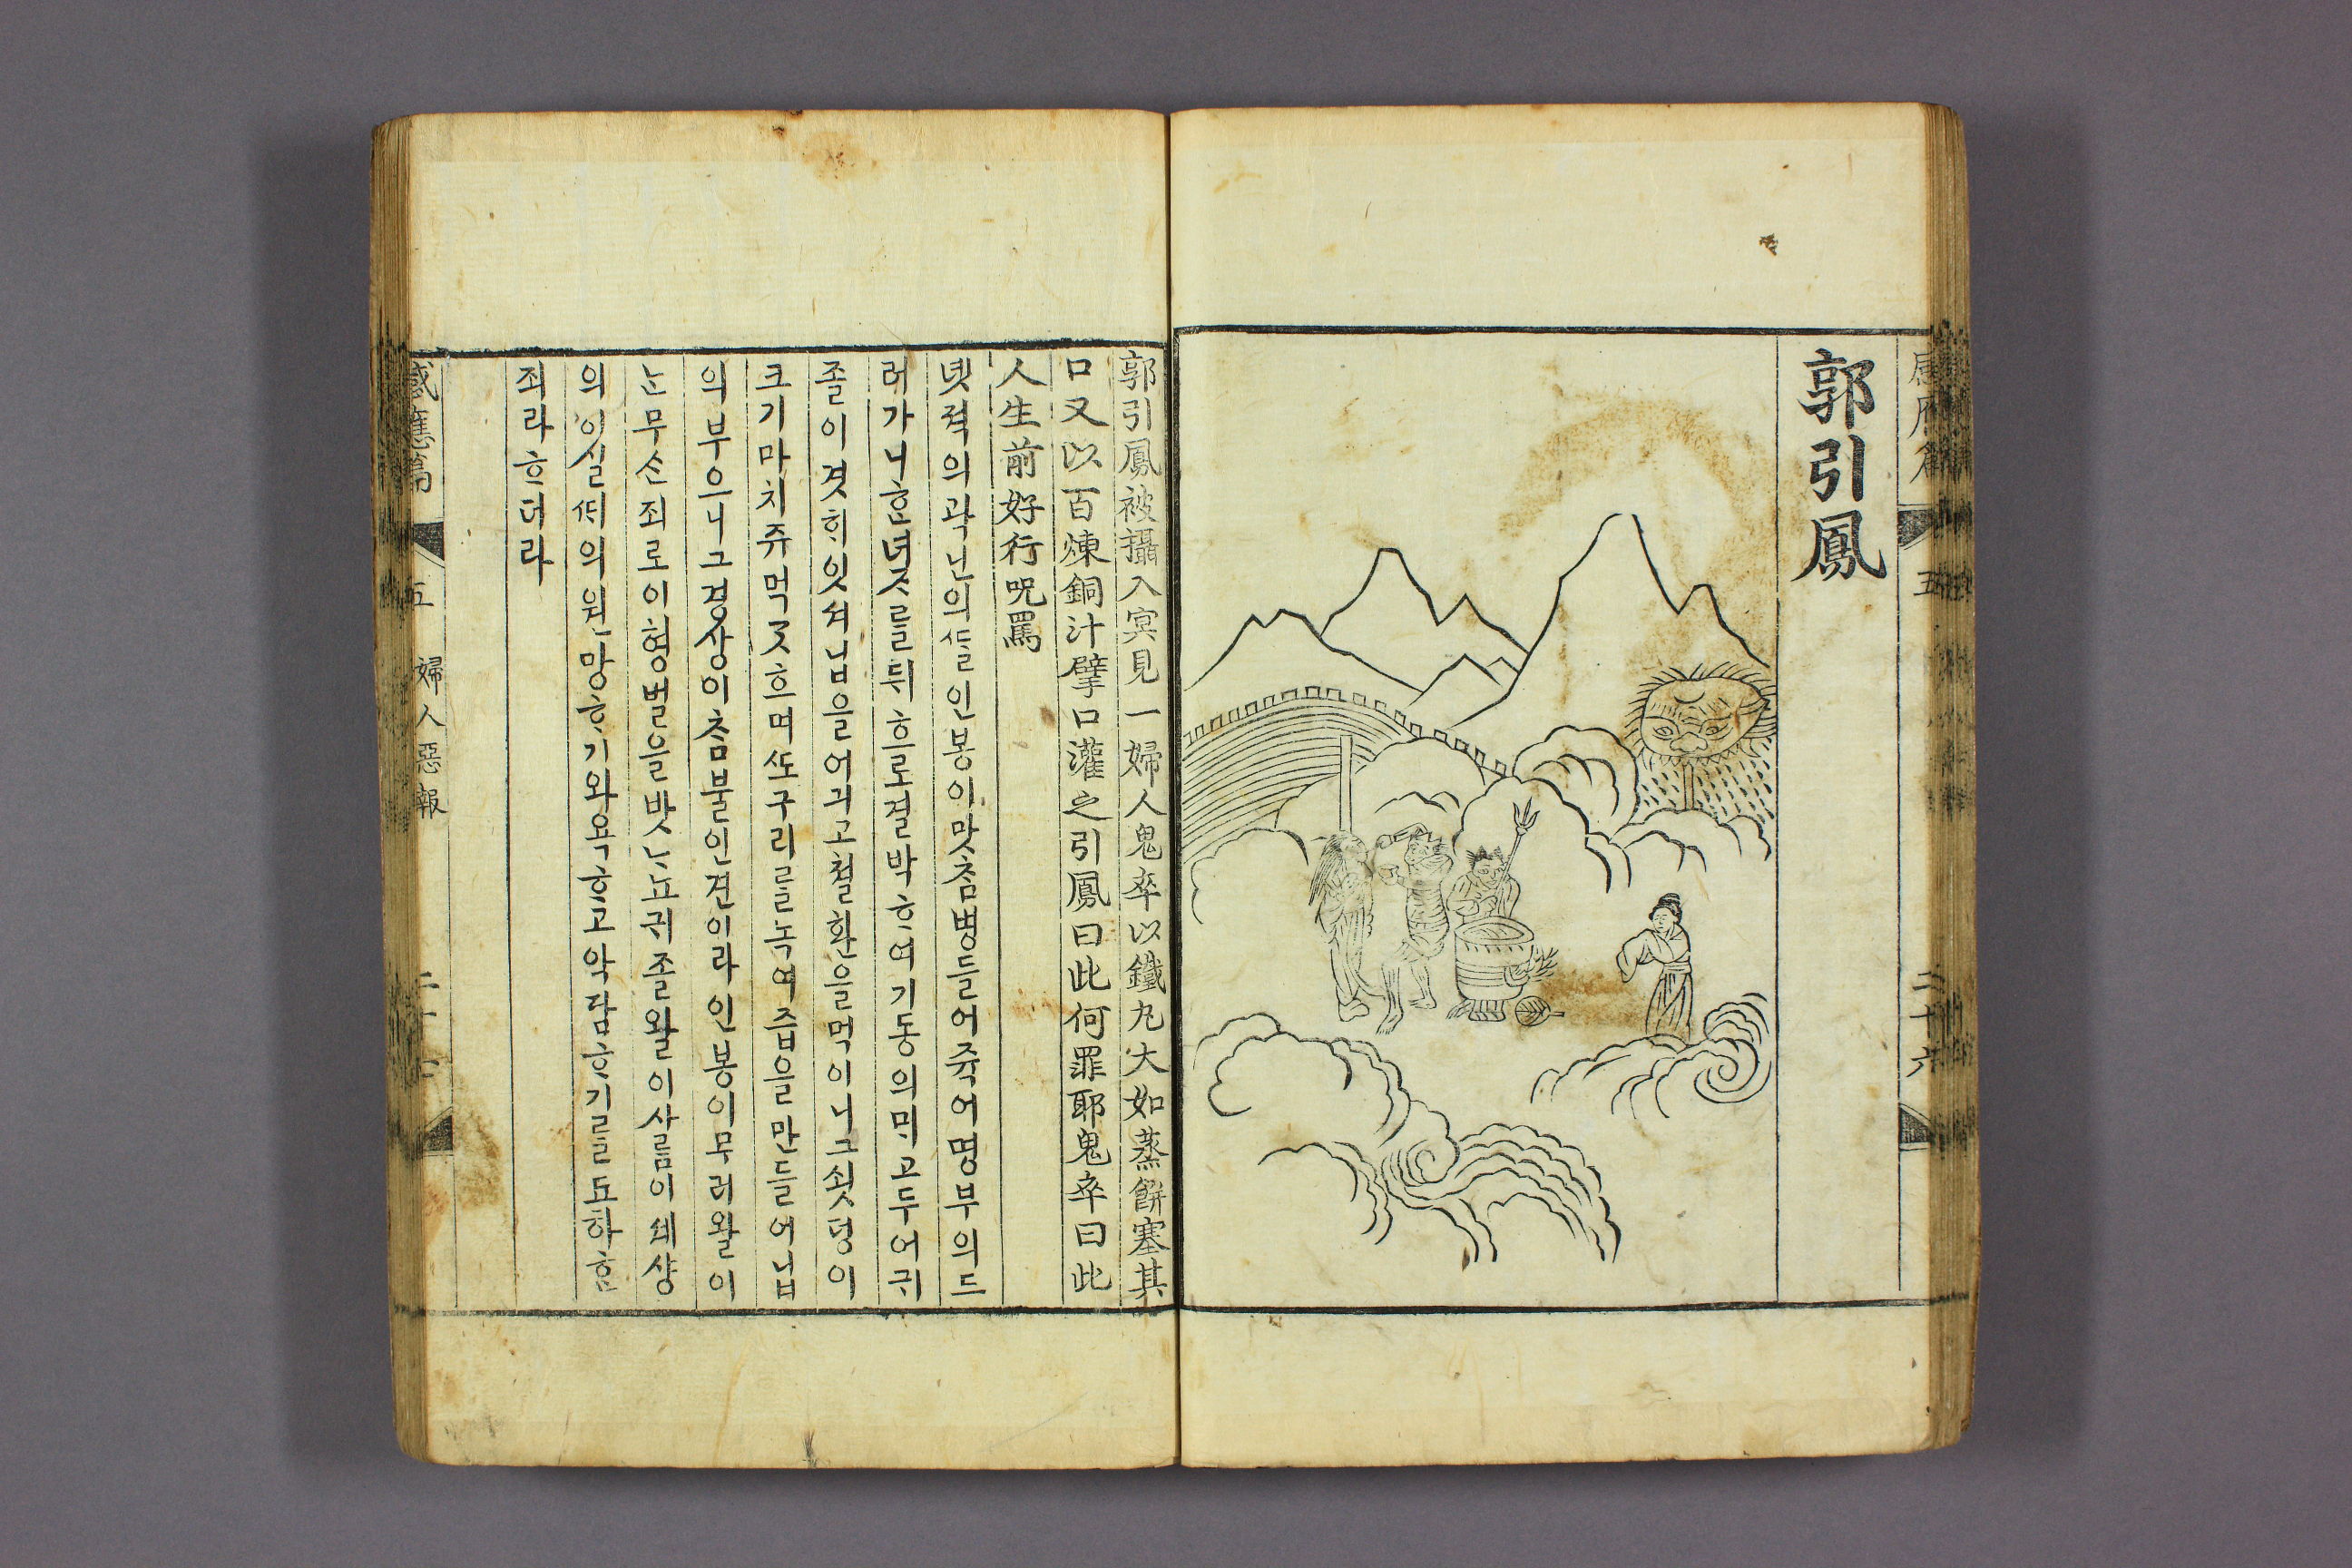 郭引鳳
五
二十六
郭引鳳被攝入冥見一婦人鬼卒以鐵丸大如蒸餠塞其
口又以百煉銅汁擘口灌之引鳳曰此何罪耶鬼卒曰此
人生前好行咒罵
녯젹의 곽녀인의 ᄯᆞᆯ 인봉이 맛ᄎᆞᆷ 병들어 쥭어 명부의 드
러가니 ᄒᆞᆫ 녀ᄌᆞ를 뒤흐로 결박ᄒᆞ여 기동의 ᄆᆡ고 두어 귀
졸이 겻ᄒᆡ 잇셔 닙을 어긔고 쳘환을 먹이니 그 쇳덩이
크기 마치 쥬먹 ᄀᆞᆺ흐며 ᄯᅩ 구리를 녹여 즙을 만들어 닙
의 부으니 그 경상이 ᄎᆞᆷ불인견이라 인봉이 무러 왈 이
ᄂᆞᆫ 무ᄉᆞᆫ 죄로 이 형벌을 밧ᄂᆞ뇨 귀졸 왈 이 사ᄅᆞᆷ이 셰샹
의 이실 ᄯᆡ의 원망ᄒᆞ기와 욕ᄒᆞ고 악담ᄒᆞ기를 됴하ᄒᆞᆫ
죄라 ᄒᆞ더라
感應篇
五
婦人惡報